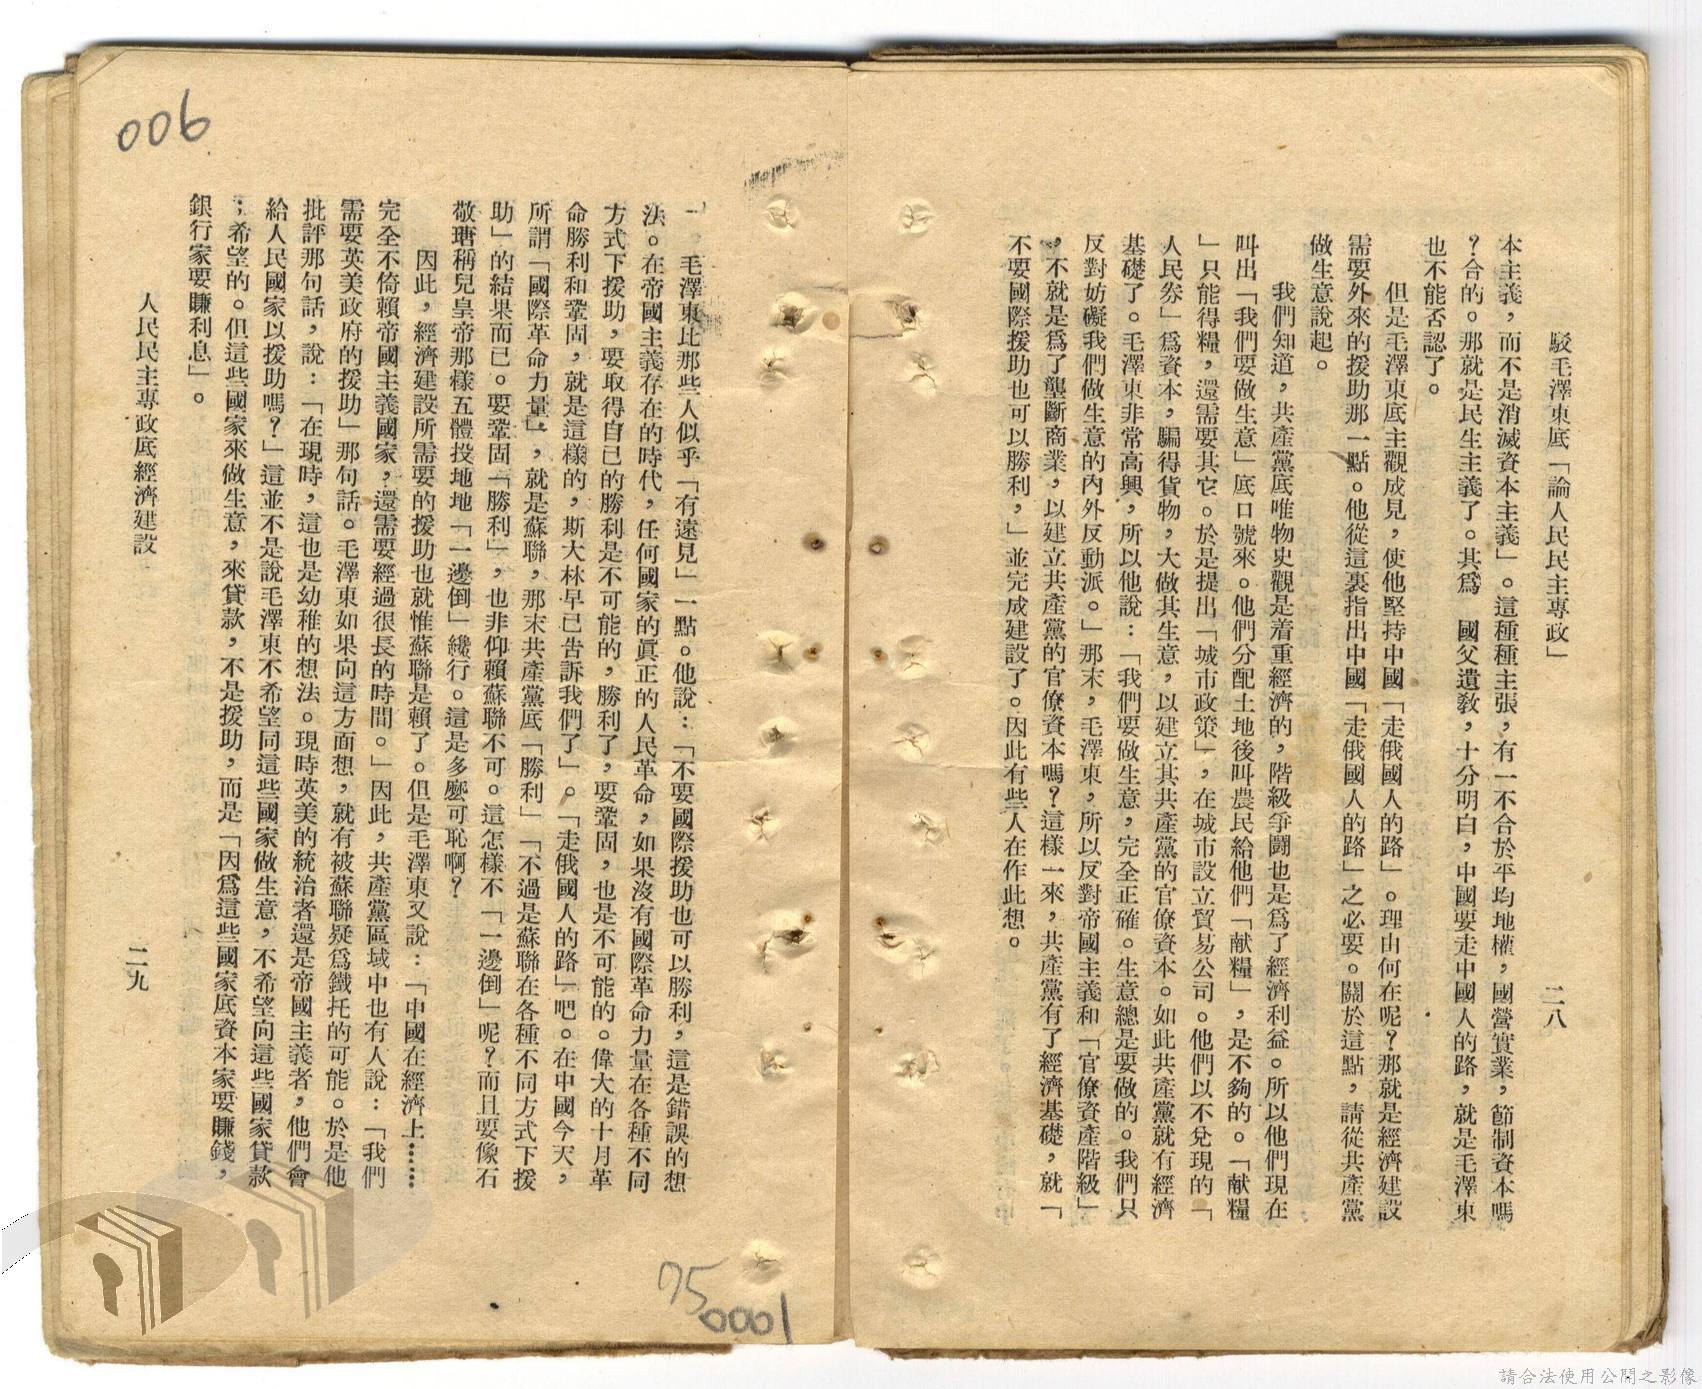 駁毛澤東底「論人民民主專政」
二八
本主義，而不是消滅資本主義」。這種種主張，有一不合於平均地權，國營實業，節制資本嗎
？合的。那就是民生主義了。其爲　國父遺敎，十分明白，中國要走中國人的路，就是毛澤東
也不能否認了。
但是毛澤東底主觀成見，使他堅持中國「走俄國人的路」。理由何在呢？那就是經濟建設
需要外來的援助那一點。他從這裏指出中國「走俄國人的路」之必要。關於這點，請從共產黨
做生意說起。
我們知道，共產黨底唯物史觀是着重經濟的，階級爭鬪也是爲了經濟利益。所以他們現在
叫出「我們要做生意」底口號來。他們分配土地後叫農民給他們「献糧」，是不夠的。「献糧
」只能得糧，還需要其它。於是提出「城市政策」，在城市設立貿易公司。他們以不兌現的「
人民券」爲資本，騙得貨物，大做其生意，以建立其共產黨的官僚資本。如此共產黨就有經濟
基礎了。毛澤東非常高興，所以他說：「我們要做生意，完全正確。生意總是要做的。我們只
反對妨礙我們做生意的內外反動派。」那末，毛澤東，所以反對帝國主義和「官僚資產階級」
，不就是爲了壟斷商業，以建立共產黨的官僚資本嗎？這樣一來，共產黨有了經濟基礎，就「
不要國際援助也可以勝利，」並完成建設了。因此有些人在作此想。
毛澤東比那些人似乎「有遠見」一點。他說：「不要國際援助也可以勝利，這是錯誤的想
法。在帝國主義存在的時代，任何國家的眞正的人民革命，如果沒有國際革命力量在各種不同
方式下援助，要取得自己的勝利是不可能的，勝利了，要鞏固，也是不可能的。偉大的十月革
命勝利和鞏固，就是這樣的，斯大林早已告訴我們了」。「走俄國人的路」吧。在中國今天，
所謂「國際革命力量」，就是蘇聯，那末共產黨底「勝利」「不過是蘇聯在各種不同方式下援
助」的結果而已。要鞏固「勝利」，也非仰賴蘇聯不可。這怎樣不「一邊倒」呢？而且要像石
敬瑭稱兒皇帝那樣五體投地地「一邊倒」纔行。這是多麽可恥啊？
因此，經濟建設所需要的援助也就惟蘇聯是賴了。但是毛澤東又說：「中國在經濟上……
完全不倚賴帝國主義國家，還需要經過很長的時間。」因此，共產黨區域中也有人說：「我們
需要英美政府的援助」那句話。毛澤東如果向這方面想，就有被蘇聯疑爲鐵托的可能。於是他
批評那句話，說：「在現時，這也是幼稚的想法。現時英美的統治者還是帝國主義者，他們會
給人民國家以援助嗎？」這並不是說毛澤東不希望同這些國家做生意，不希望向這些國家貸款
；希望的。但這些國家來做生意，來貸款，不是援助，而是「因爲這些國家底資本家要賺錢，
銀行家要賺利息」。
人民民主專政底經濟建設
二九
006
75
0001
請合法使用公開之影像